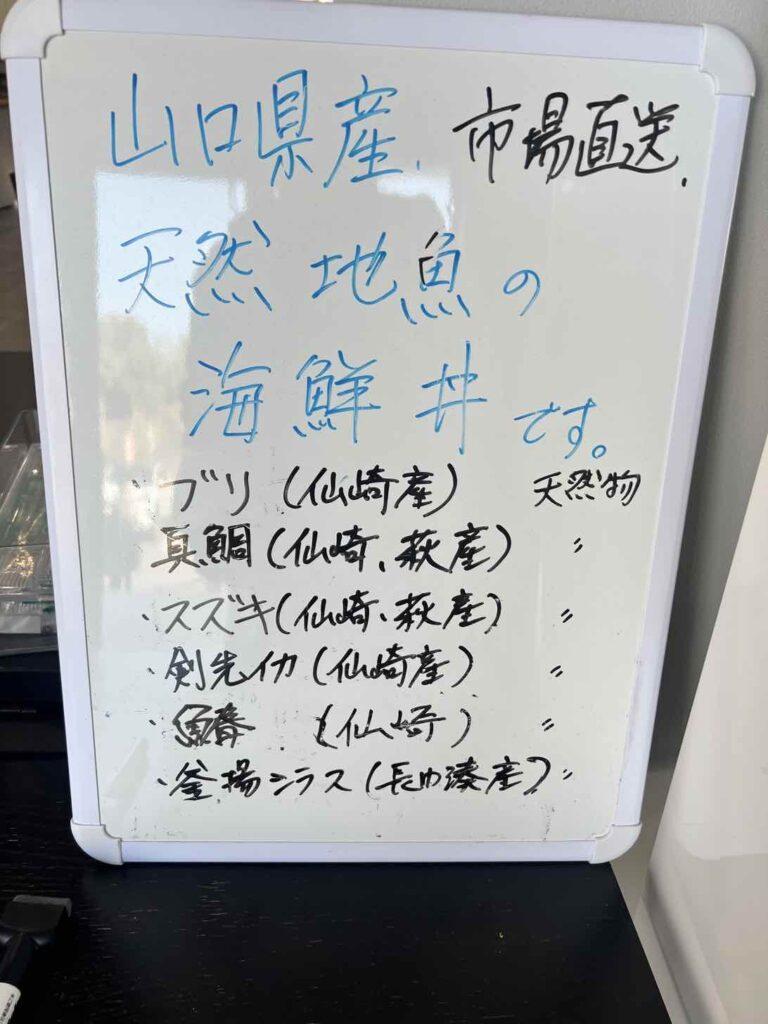 山口県産. 市場直送.
天然 地魚の
海鮮丼です。
・ブリ (仙崎産) 天然物
真鯛 (仙崎、萩産) 〃
・スズキ (仙崎、萩産) 〃
・剣先イカ (仙崎産) 〃
・鰆 (仙崎) 〃
・釜揚シラス (長門湊産) 〃